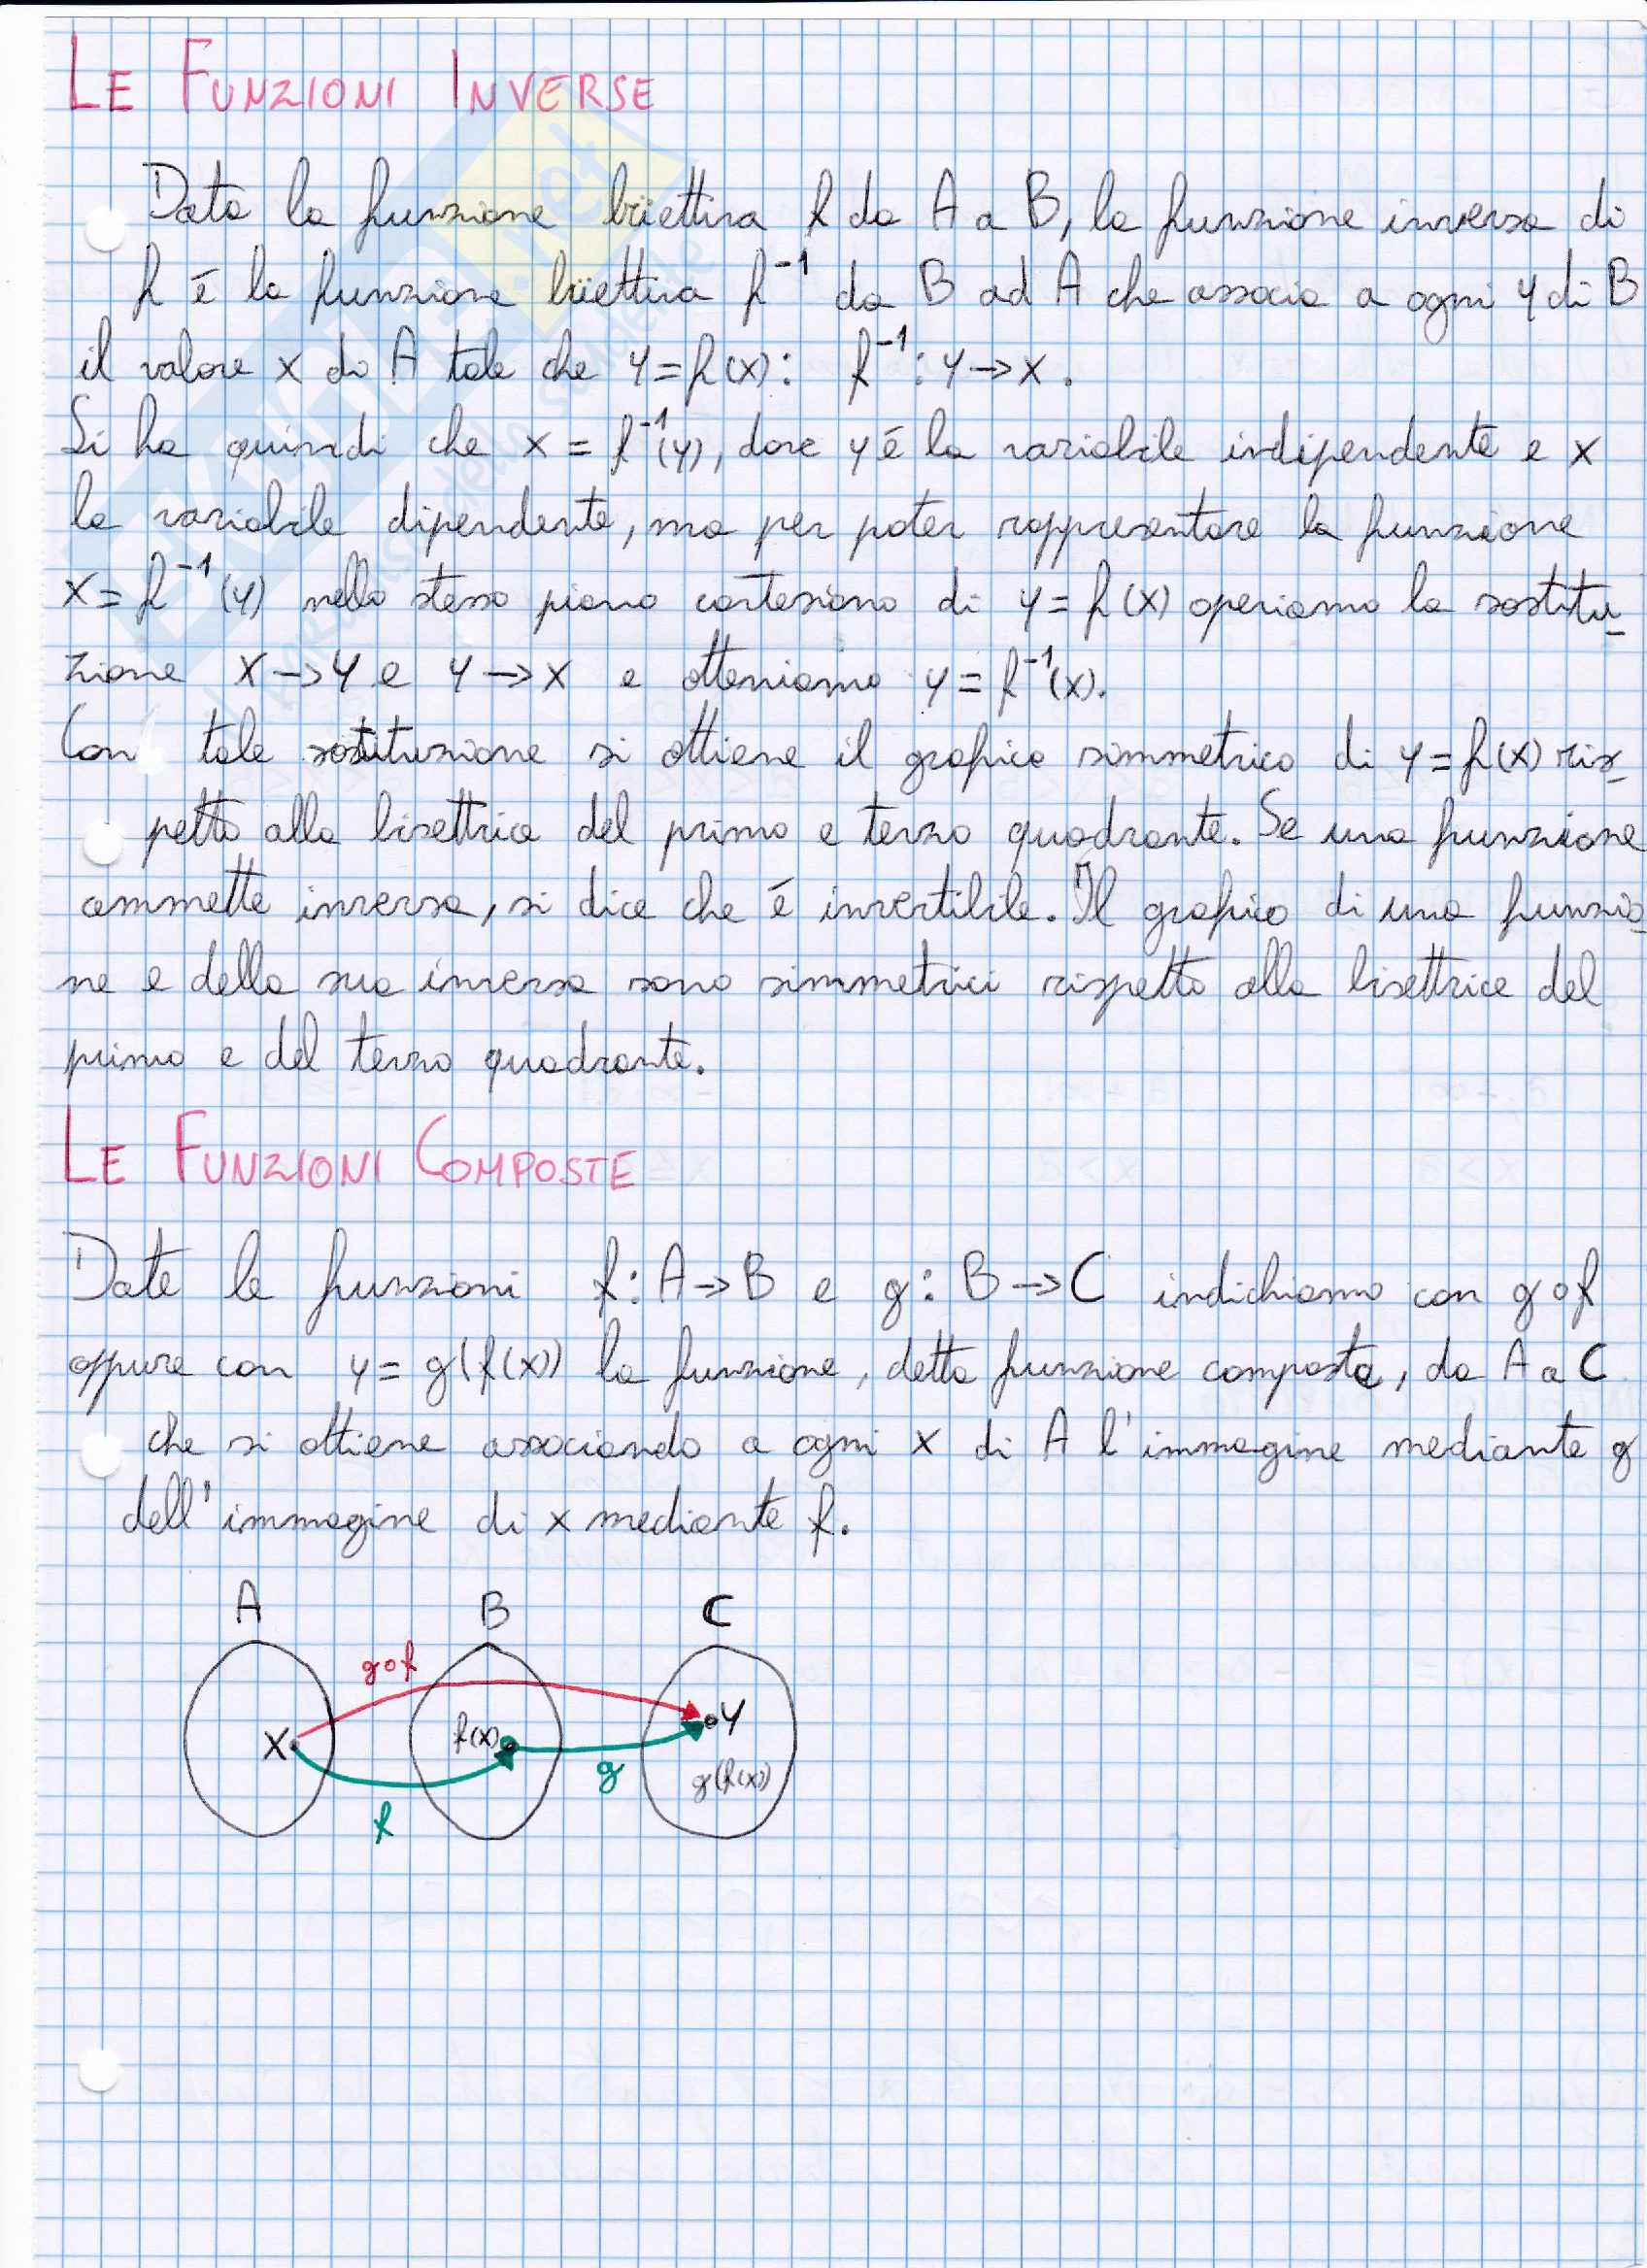 LE FUNZIONI INVERSE
Data la funzione biiettiva f da A a B, la funzione inversa di
f é la funzione biiettiva f⁻¹ da B ad A che associa a ogni y di B
il valore x di A tale che y=f(x): f⁻¹: y→x.
Si ha quindi che x = f⁻¹(y), dove y é la variabile indipendente e x
la variabile dipendente, ma per poter rappresentare la funzione
x=f⁻¹(y) nello stesso piano cartesiano di y=f(x) operiamo la sostitu_
zione x→y e y→x e otteniamo y=f⁻¹(x).
Con tale sostituzione si ottiene il grafico simmetrico di y=f(x) ris_
petto alla bisettrice del primo e terzo quadrante. Se una funzione
ammette inversa, si dice che é invertibile. Il grafico di una funzio_
ne e della sua inversa sono simmetrici rispetto alla bisettrice del
primo e del terzo quadrante.
LE FUNZIONI COMPOSTE
Date le funzioni f: A→B e g: B→C indichiamo con g∘f
oppure con y=g(f(x)) la funzione, detta funzione composta, da A a C
che si ottiene associando a ogni x di A l'immagine mediante g
dell'immagine di x mediante f.
A B C
g∘f
x f(x) y
g g(f(x))
f